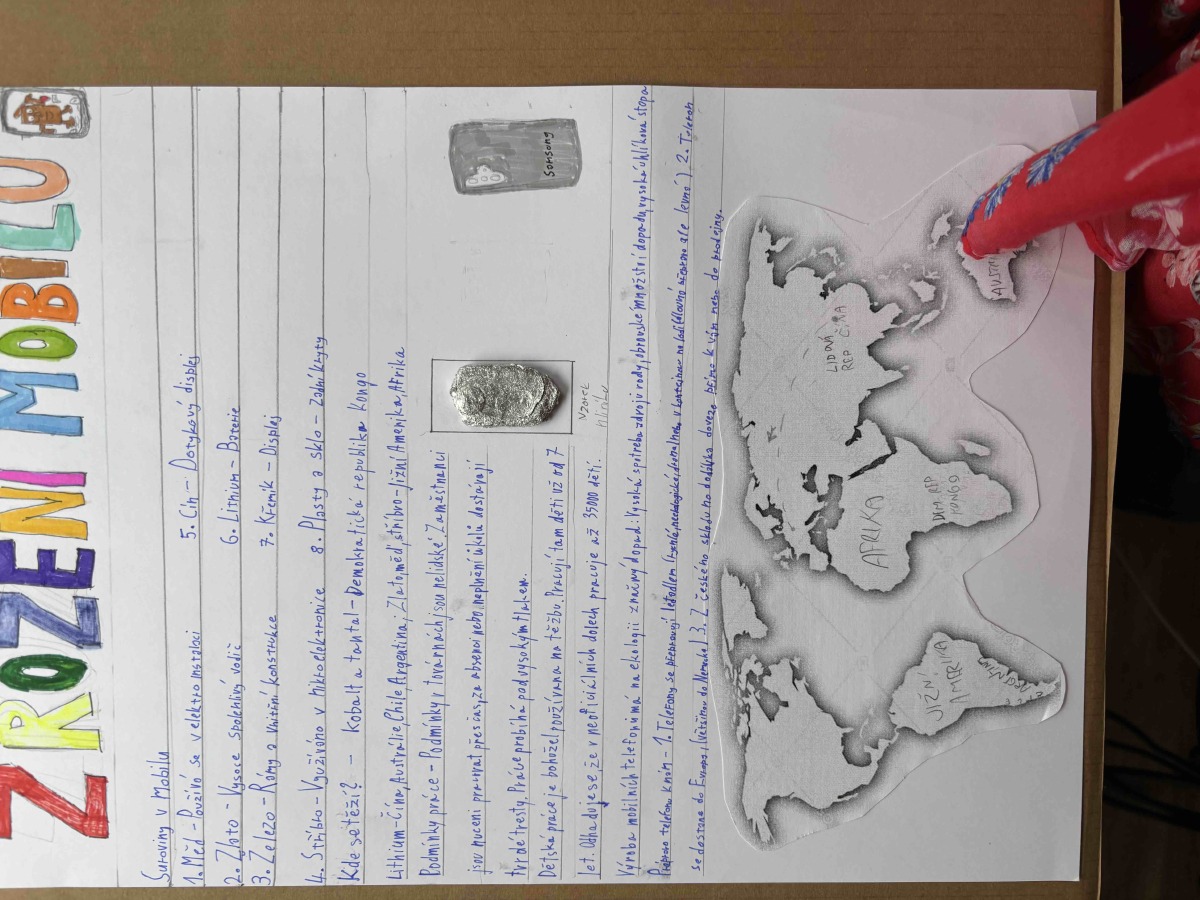 ZROZENÍ MOBILU
Suroviny v mobilu
1. Měď - Používá se v elektroinstalaci 5. Cín - Dotykový displej
2. Zlato - Vysoce spolehlivý vodič 6. Lithium - Baterie
3. Železo - Rámy a vnitřní konstrukce 7. Křemík - Displej
4. Stříbro - Využíváno v mikroelektronice 8. Plasty a sklo - Zadní kryty
Kde se těží? - Kobalt a tantal - Demokratická republika Kongo
Lithium - Čína, Austrálie, Chile, Argentina, Zlato, měď, stříbro - Jižní Amerika, Afrika
Podmínky práce - Podmínky v továrnách jsou nelidské. Zaměstnanci
jsou nuceni pracovat přesčas, za absenci nebo neplnění úkolů dostávají
tvrdé tresty. Práce probíhá pod vysokým tlakem.
Dětská práce je bohužel používána na těžbu. Pracují tam děti už od 7
let. Odhaduje se, že v neoficiálních dolech pracuje až 35000 dětí.
Vzorek
hliníku
Somsung
Výroba mobilních telefonů má na ekologii značný dopad: Vysoká spotřeba zdrojů vody, obrovské množství odpadu, vysoká uhlíková stopa
telefonu k nám - 1. Telefony se přepravují letadlem (rychlé, neekologické, drahé) nebo v kontejneru na lodi (dlouho ale levně) 2. Telefon
se dostane do Evropy (většinou do Německa) 3. Z českého skladu ho dodávka doveze přímo k vám nebo do prodejny.
LIDOVÁ
REP. ČÍNA
AFRIKA
DEM. REP.
KONGO
JIŽNÍ
AMERIKA
ARGENTINA